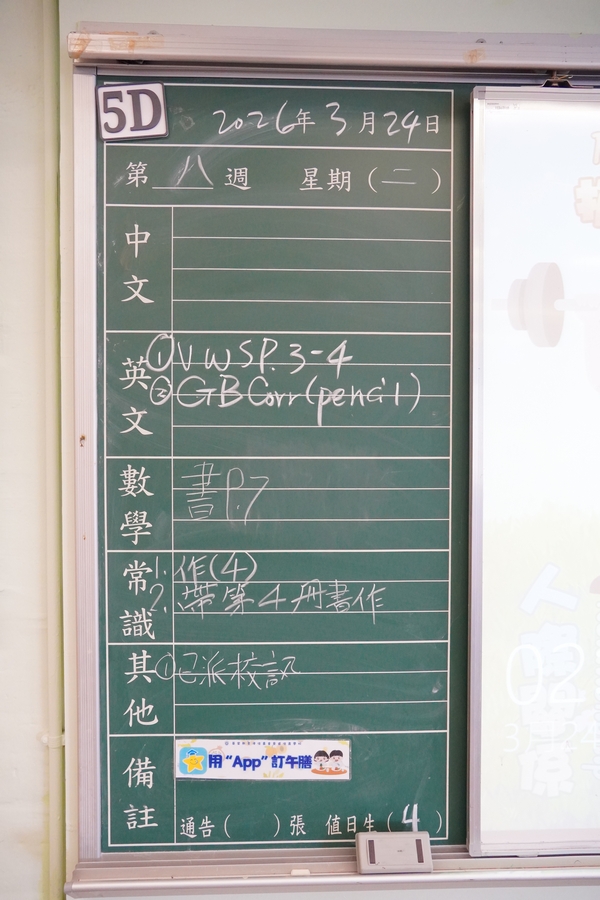 5D
2026年3月24日
第八週 星期(二)
中文
英文
①VWSP.3-4
②GBCorr(pencil)
數學
書P.7
常識
1.作(4)
2.帶第4冊書作
其他
①已派校訊
備註
用“App”訂午膳
通告( )張 值日生(4)
02